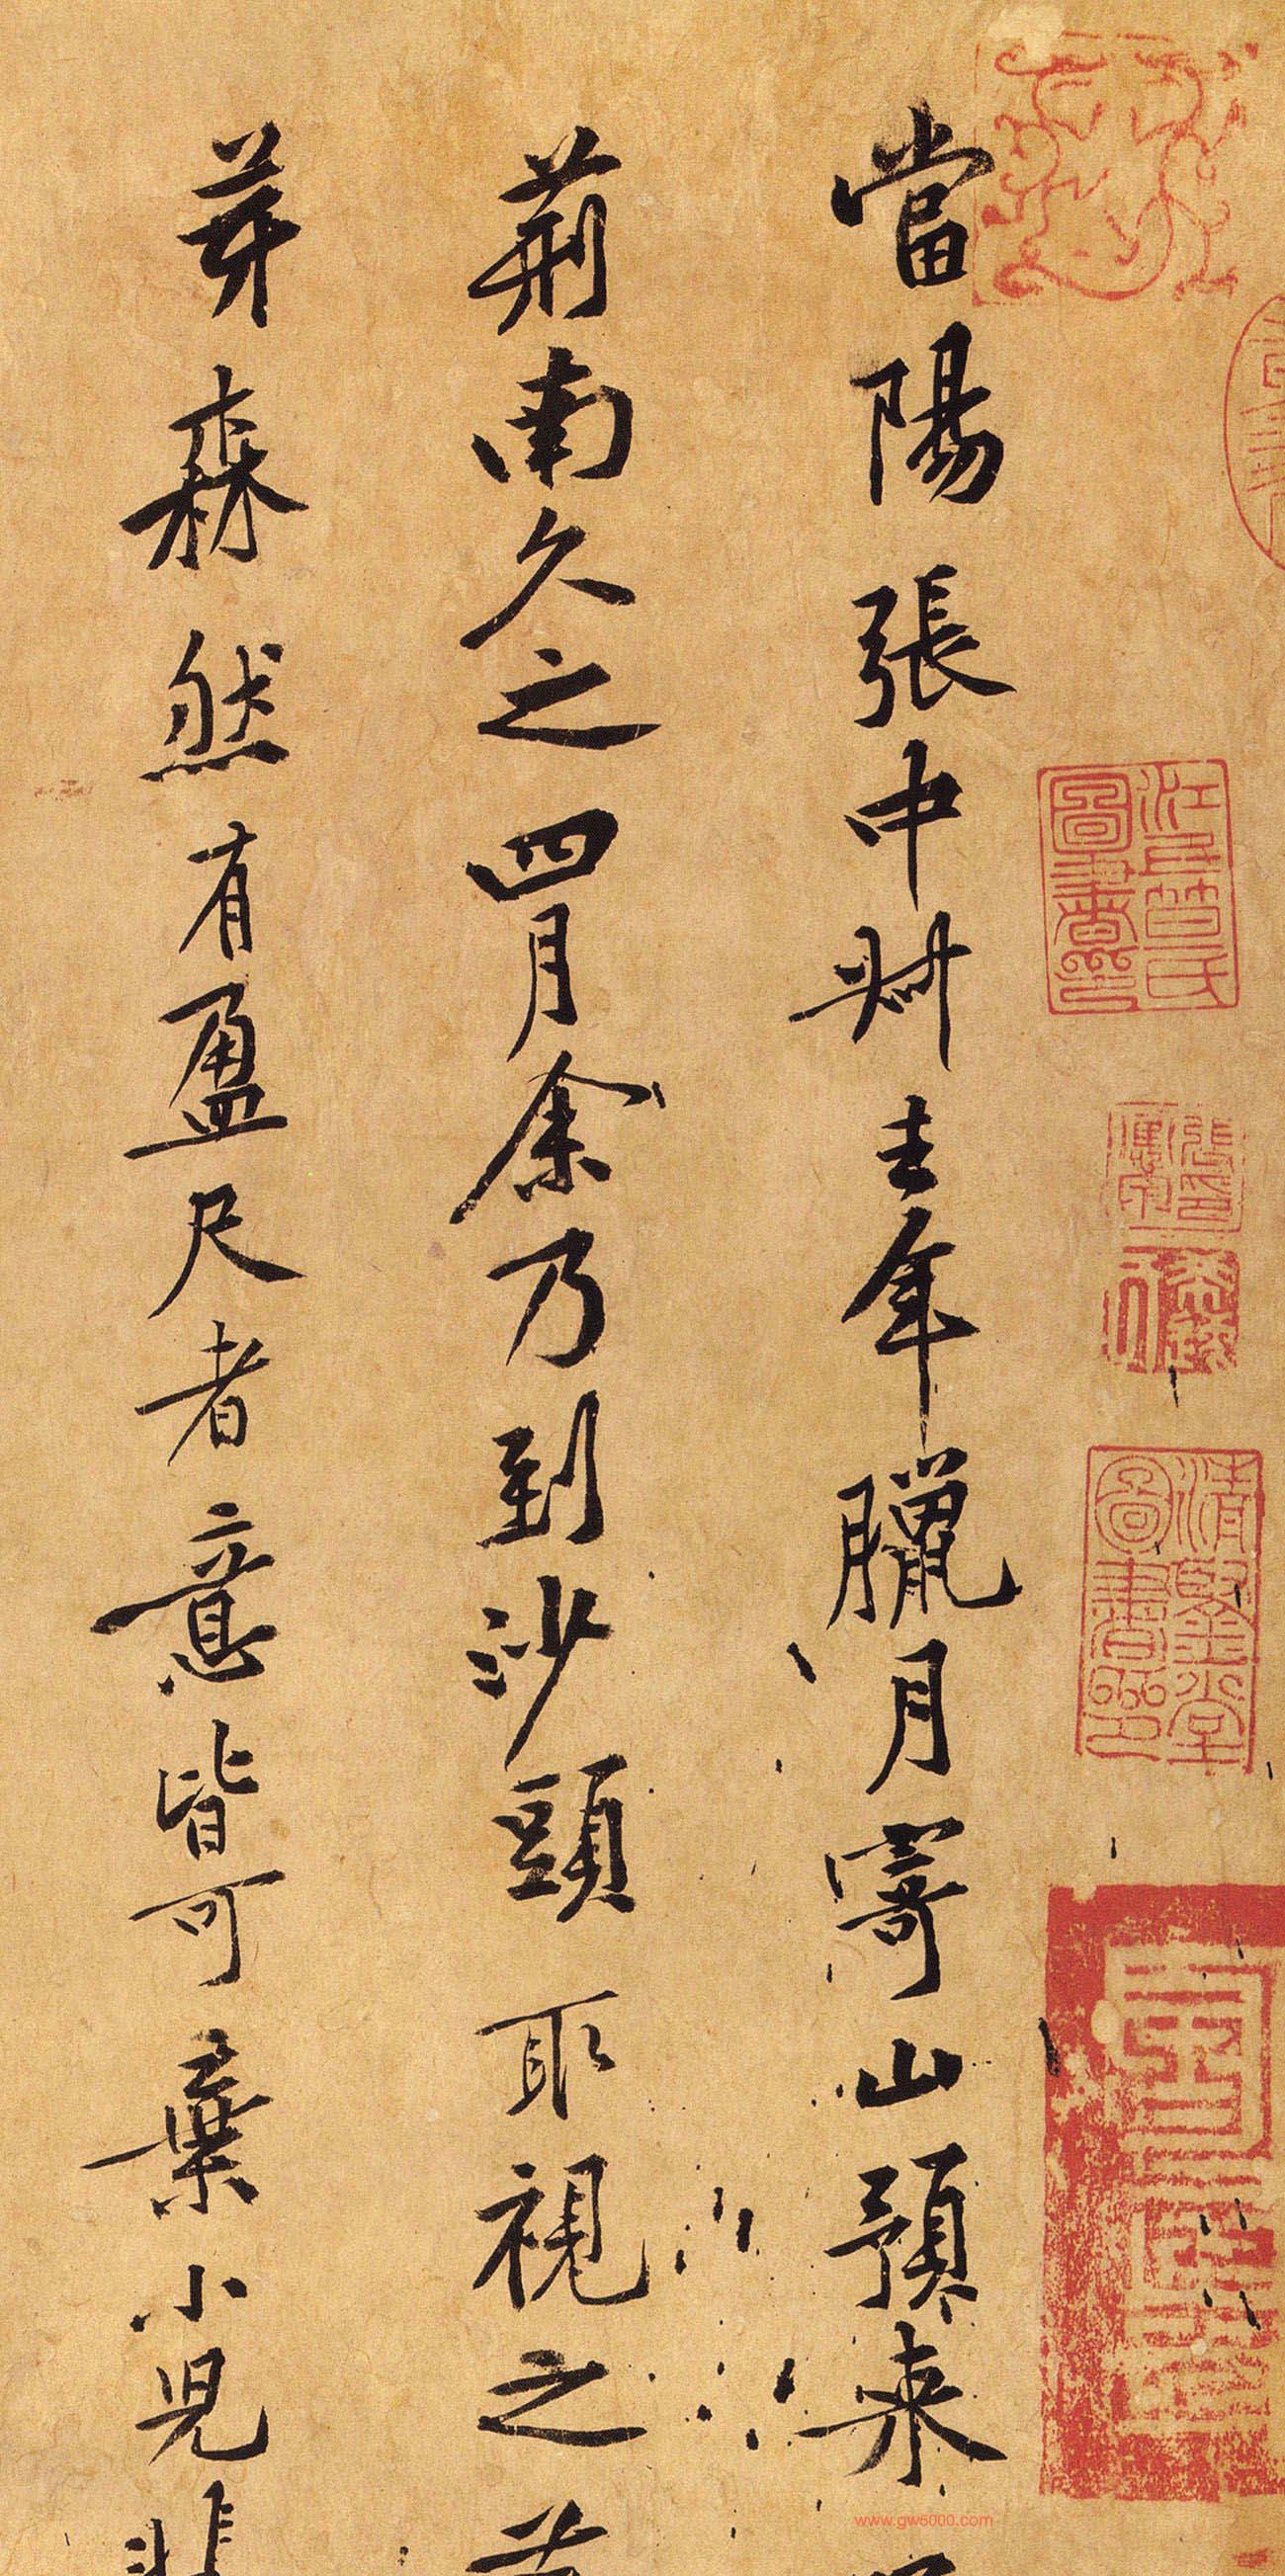 當陽張中叔去年臘月寄山預来
荊南久之四月余乃到沙頭取視之
芽森然有盈尺者意皆可棄小兒
www.gw6000.com